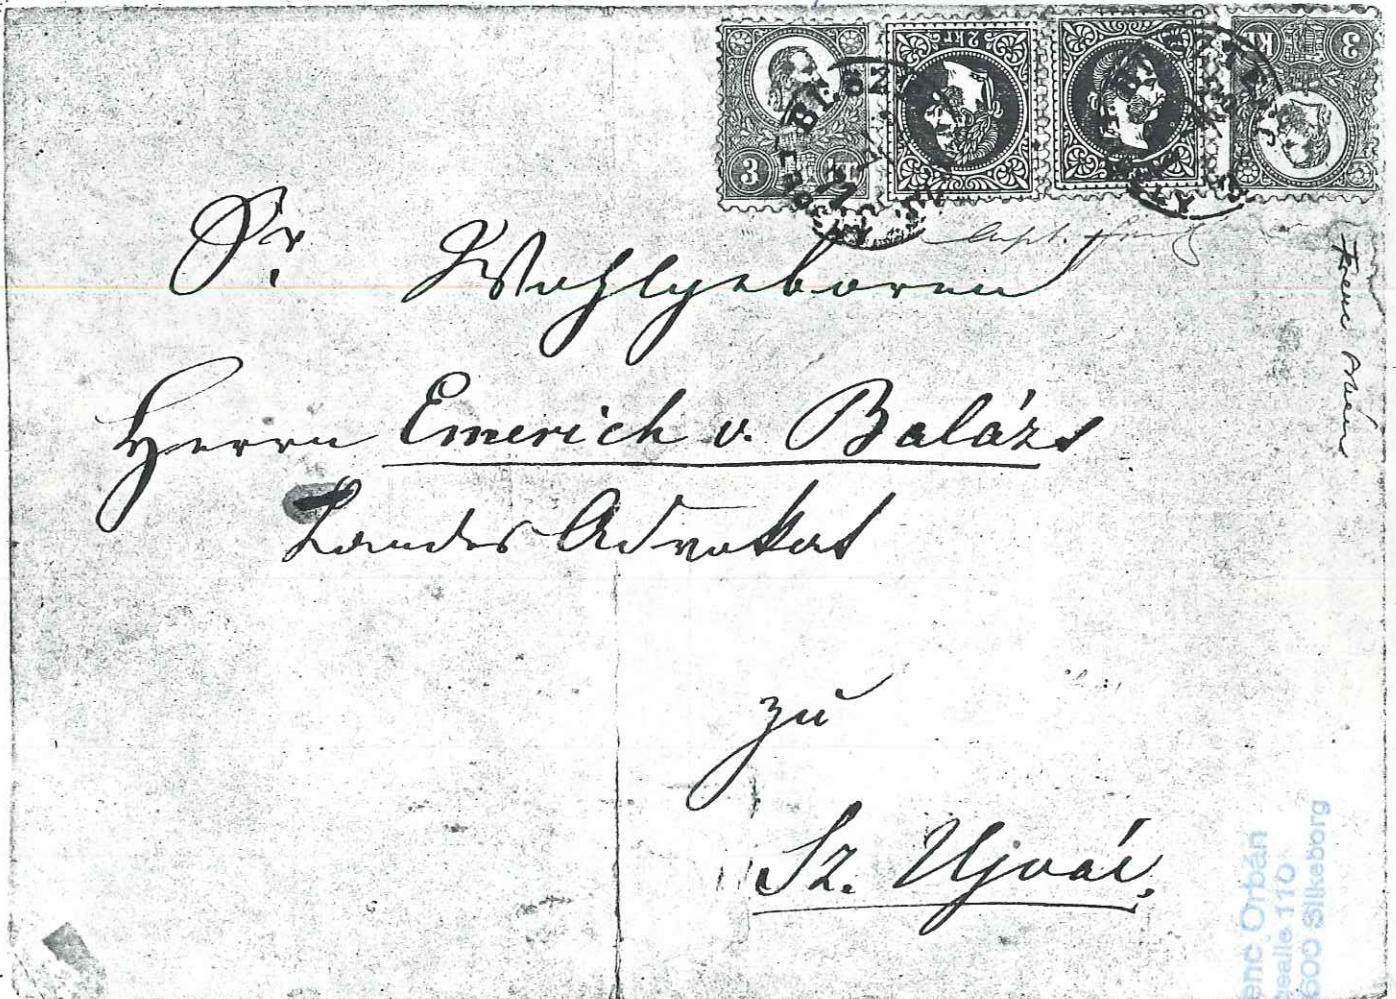 3 kr
2 kr
3 kr
Sr Wohlgeboren
Herrn Emerich v. Balázs
Landes Advokat
zu
Sz. Ujvár.
Ferenc Orbán
enc Orbán
600 Silkeborg